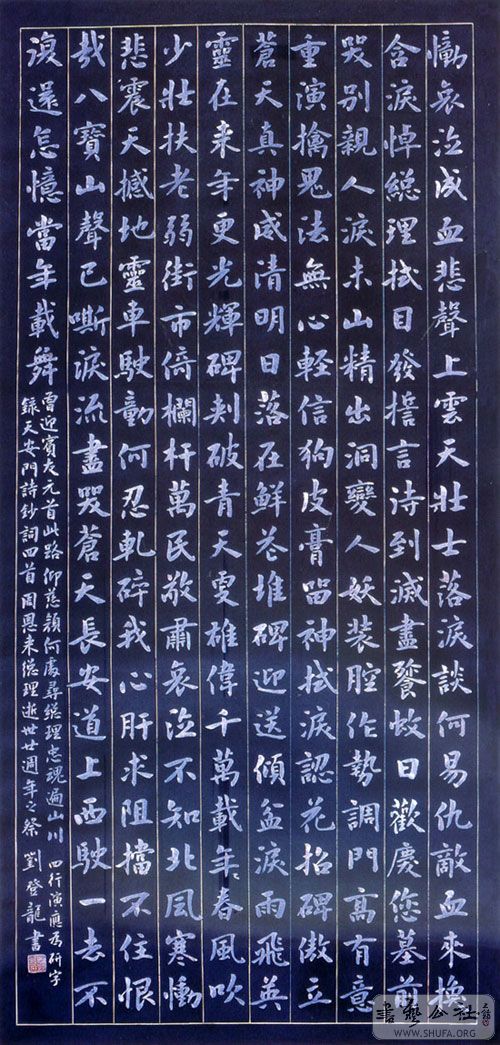 慟哀泣成血悲聲上雲天壯士落淚談何易仇敵血來換
含淚悼総理拭目發誓言待到滅盡餮蚊日歡慶您墓前
哭別親人淚未山精出洞變人妖裝腔作勢調門高有意
重演擒鬼法無心輕信狗皮膏罡神拭淚認花招碑傲立
蒼天真神感清明日落在鮮花堆碑迎送傾盆淚雨飛英
靈在來年更光輝碑刺破青天雯雄偉千萬載年々春風吹
少壯扶老弱街市倚欄杆萬民敬肅哀泣不知北風寒慟
悲震天撼地靈車駛動何忍軋碎我心肝求阻擋不住恨
哉八寶山聲已嘶淚流盡哭蒼天長安道上西駛一去不
復還怎憶當年載舞
曾迎賓友元首此路仰慈顏何處尋総理忠魂遍山川 四行演應為研字
錄天安門詩鈔詞四首周恩来総理逝世廿週年之祭 劉登龍書
書藝公社
WWW.SHUFA.ORG